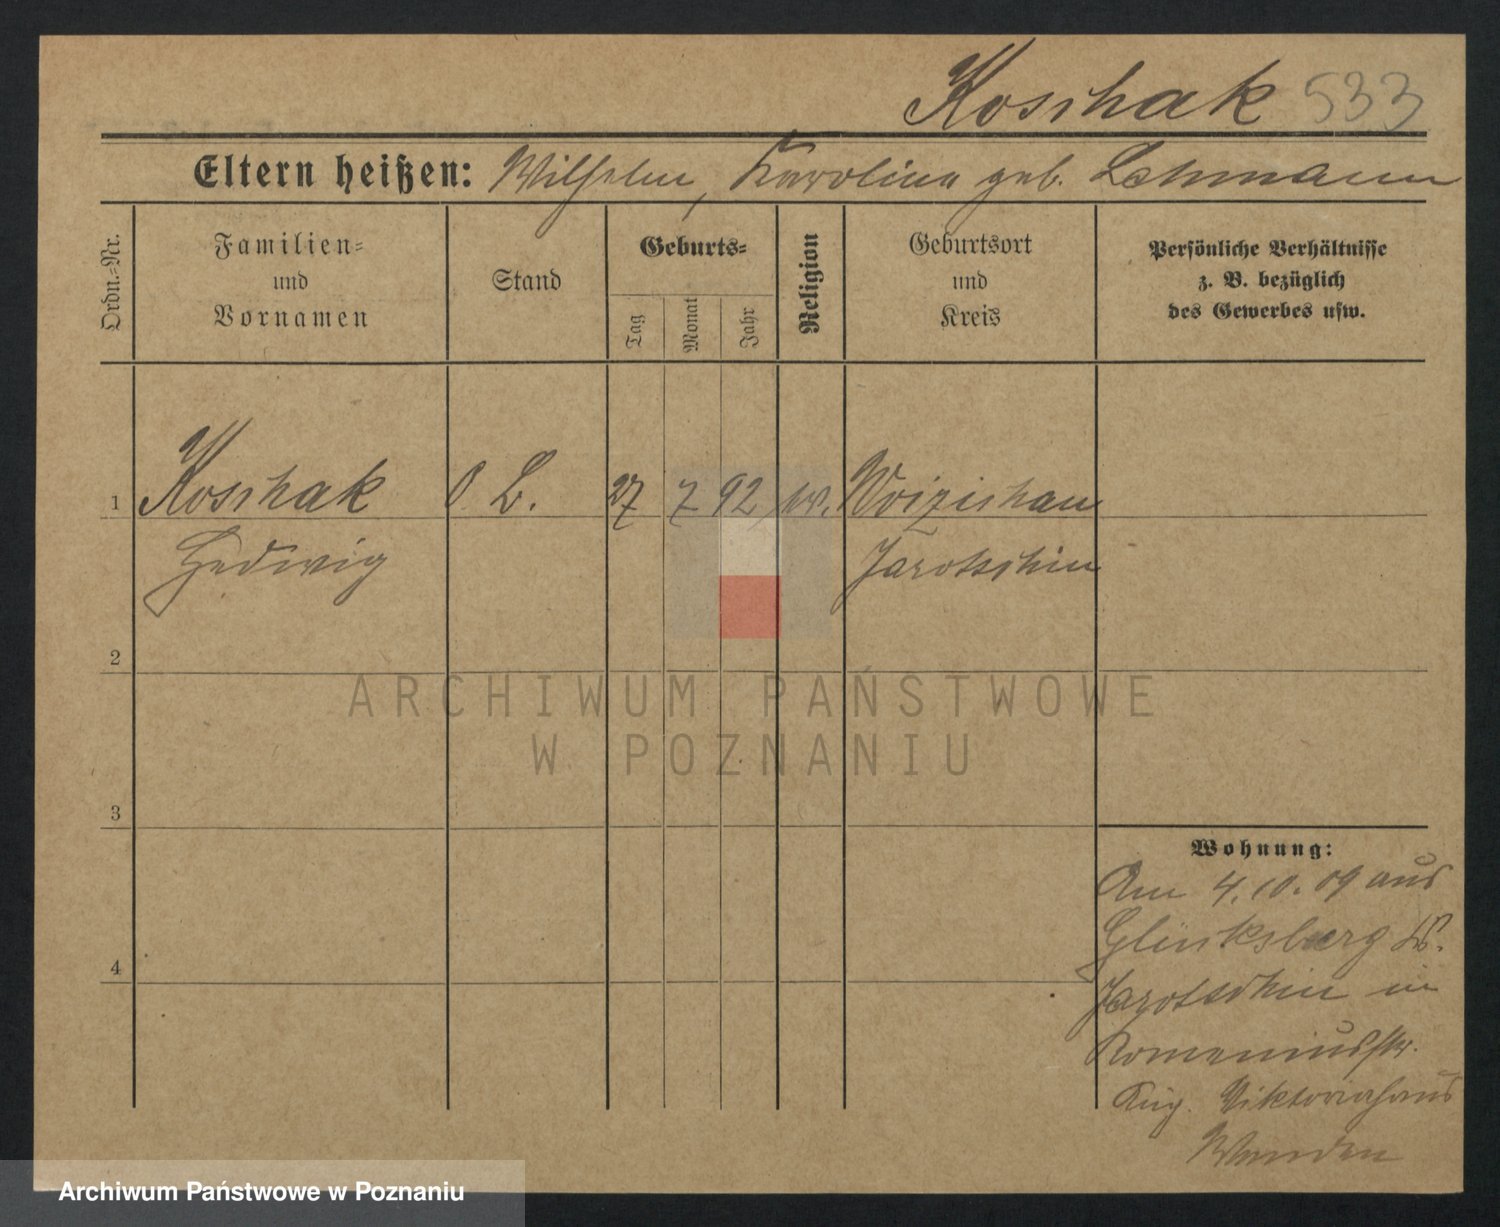 Koschak 533
Eltern heißen: Wilhelm, Karolina geb. Lehmann
Ordn.=Nr.
Familien=
und
Vornamen
Stand
Geburts=
Tag
Monat
Jahr
Religion
Geburtsort
und
Kreis
Persönliche Verhältnisse
z. B. bezüglich
des Gewerbes usw.
1 Koschak O. L. 27 7 92 ev. Woizischau
Hedwig Jarotschin
2
3
4
Wohnung:
Am 4.10.09 aus
Glücksberg Kr.
Jarotschin in
Komeniusstr.
Viktoriahaus
ARCHIWUM PAŃSTWOWE
W POZNANIU
Archiwum Państwowe w Poznaniu